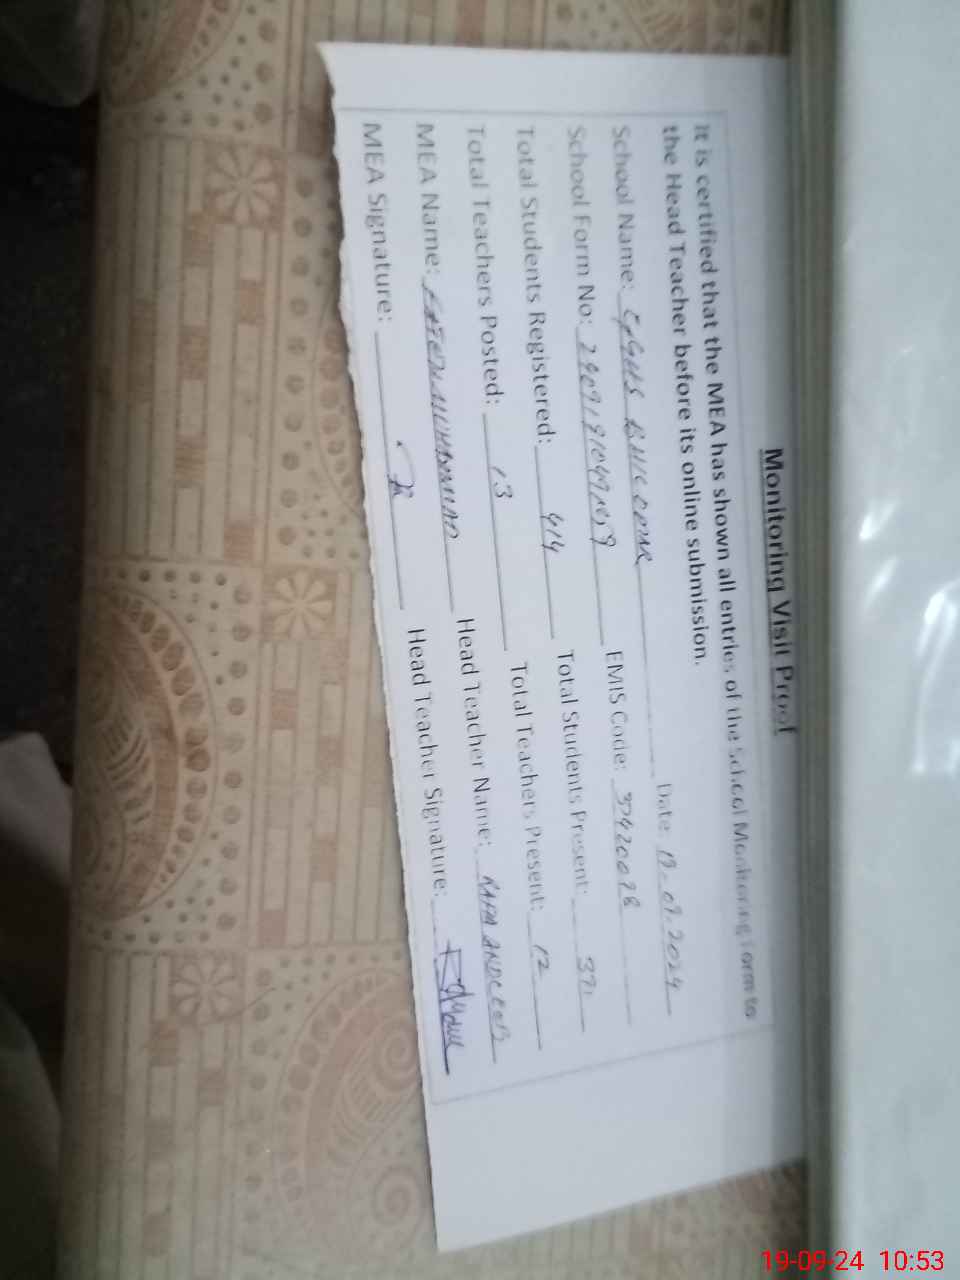 Monitoring Visit Proof
It is certified that the MEA has shown all entries of the School Monitoring Form to
the Head Teacher before its online submission.
School Name: Date: 19-09-2024
School Form No: EMIS Code: 37420098
Total Students Registered: 414 Total Students Present: 371
Total Teachers Posted: 13 Total Teachers Present: 12
MEA Name: MUHAMMAD Head Teacher Name:
MEA Signature: Head Teacher Signature:
19-09-24 10:53